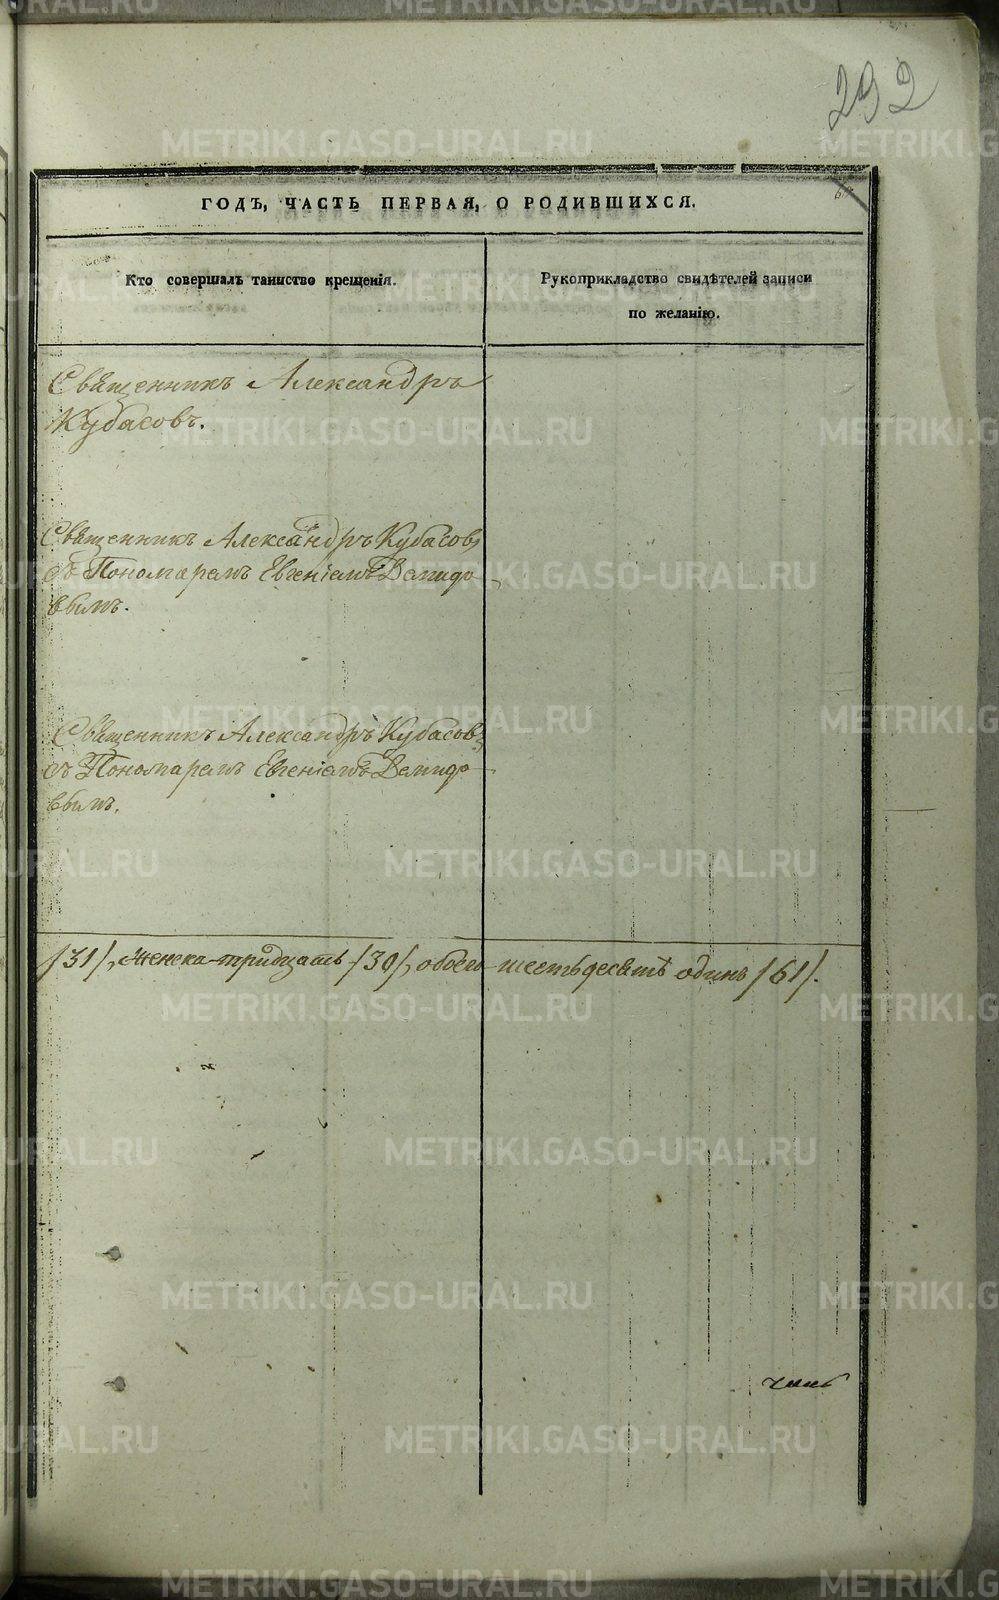 292
ГОДЪ, ЧАСТЬ ПЕРВАЯ, О РОДИВШИХСЯ.
Кто совершалъ таинство крещенія.
Рукоприкладство свидѣтелей записи
по желанію.
Священникъ Александръ
Кубасовъ.
Священникъ Александръ Кубасовъ
съ Пономаремъ Евгеніемъ Демидо-
вымъ.
Священникъ Александръ Кубасовъ
съ Пономаремъ Евгеніемъ Демидо-
вымъ.
/31/, женска тридцать /30/, обоего шестьдесятъ одинъ /61/.
METRIKI.GASO-URAL.RU